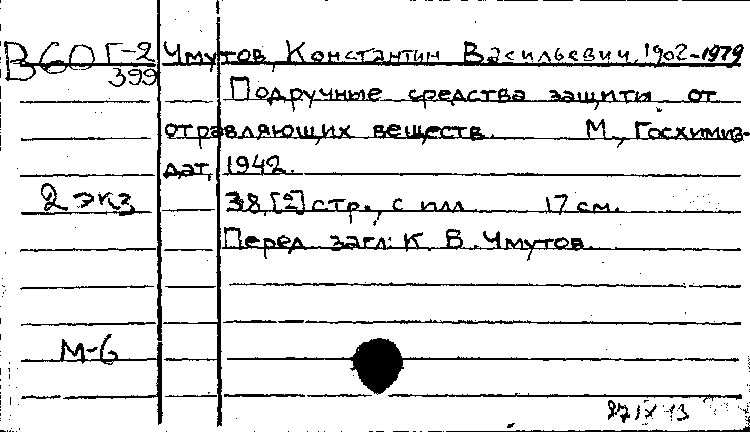 В60 Г-2 Чмутов, Константин Васильевич, 1902-1979
399
Подручные средства защиты от
отравляющих веществ. М., Госхимиз-
дат, 1942.
2 экз 38, [2] стр., с илл 17 см.
Перед загл: К. В. Чмутов.
М-6